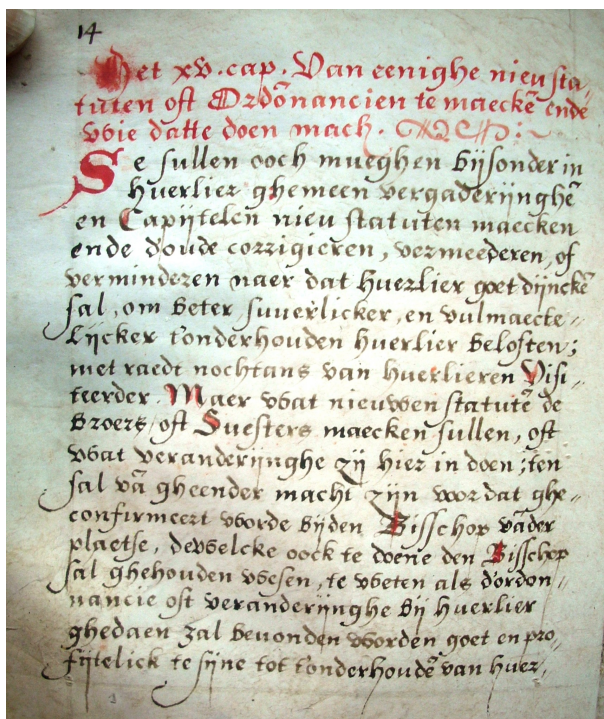 14
Het xv. cap. Van eenighe nieu sta-
tuten oft Ordõnancien te maeckẽ ende
wie datte doen mach.
Se sullen ooch mueghen bijsonder in
huerlier ghemeen vergaderijnghẽ
en Capijtelen nieu statuten maecken
ende d'oude corrigieren, vermeederen, of
verminderen naer dat huerlier goet dijnckẽ
sal, om beter suuerlicker, en vulmaecte-
lijcker t'onderhouden huerlier beloften;
met raedt nochtans van huerlieren Visi-
teerder. Maer wat nieuwen statutẽ de
Broers, oft Suesters maecken sullen, oft
wat veranderijnghe zij hier in doen; ten
sal vã gheender macht zijn voor dat ghe-
confirmeert worde bijden Bisschop vãder
plaetse, dewelcke oock te doene den Bisschop
sal ghehouden wesen, te weten als d'ordon-
nancie oft veranderijnghe bij huerlier
ghedaen zal beuonden worden goet en pro-
fijtelick te sijne tot t'onderhoudẽ van huer-